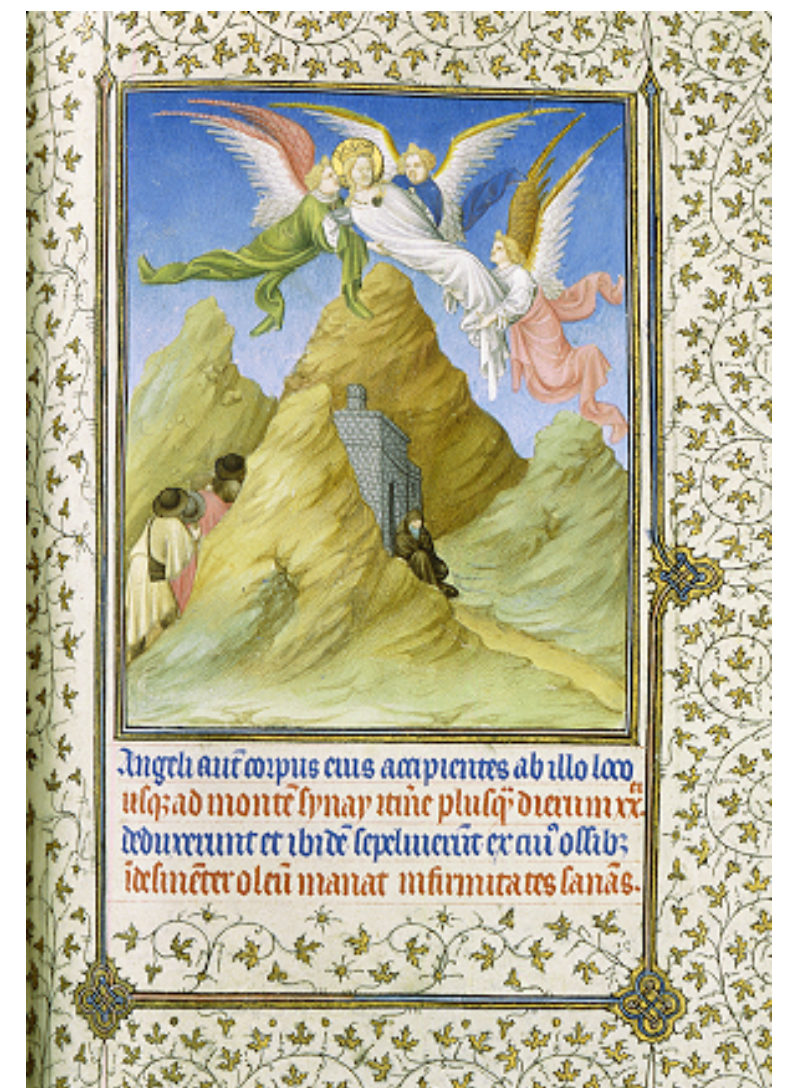 Angeli aut̄ corpus eius accipientes ab illo loco
usq; ad montē synay itiñe plusq̄ dierum xx.ti
deduxerunt et ibidē sepelierūt ex cui⁹ ossib;
īdesinēter oleū manat infirmitates sanās.